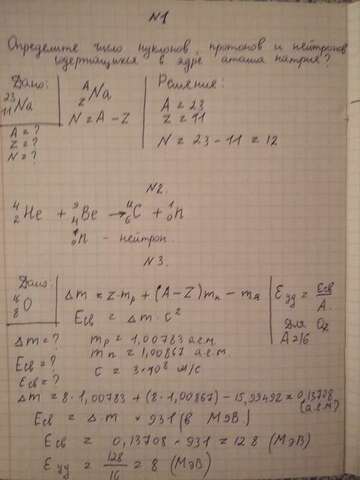 №1
Определите число нуклонов, протонов и нейтронов
содержащихся в ядре атома натрия?
Дано:
²³₁₁Na
A = ?
Z = ?
N = ?
ᴬ_Z Na
N = A - Z
Решение:
A = 23
Z = 11
N = 23 - 11 = 12
№2.
⁴₂He + ⁹₄Be → ¹²₆C + ¹₀n
¹₀n - нейтрон.
№3.
Дано:
¹⁶₈O
Δm = ?
Eсв = ?
Eсв = ?
Δm = Z·mp + (A-Z)mn - mя
Eсв = Δm · c²
mp = 1,00783 а.е.м.
mn = 1,00867 а.е.м.
c = 3·10⁸ м/с
Eуд = Eсв/A.
Для O₂
A = 16
Δm = 8·1,00783 + (8·1,00867) - 15,99492 = 0,13708
(а.е.м)
Eсв = Δm · 931 (в МэВ)
Eсв = 0,13708 · 931 = 128 (МэВ)
Eуд = 128/16 = 8 (МэВ)